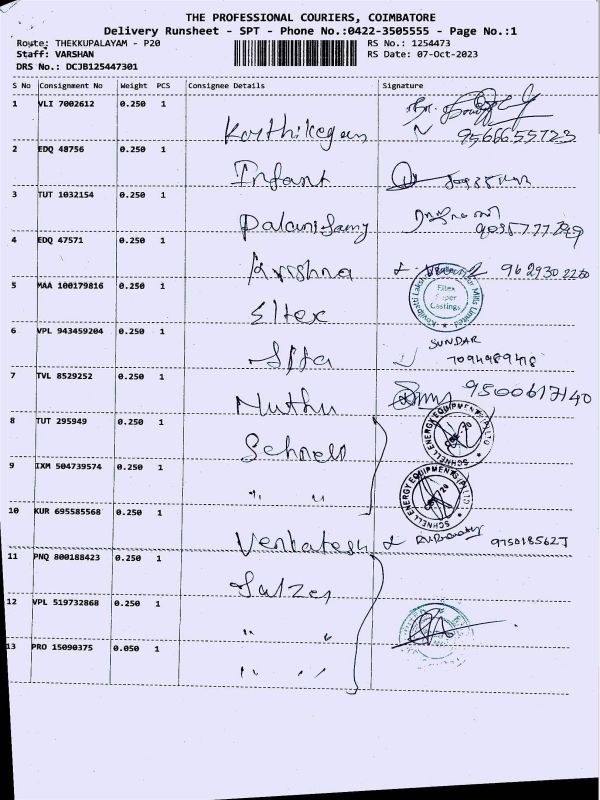 THE PROFESSIONAL COURIERS, COIMBATORE
Delivery Runsheet - SPT - Phone No.:0422-3505555 - Page No.:1
Route: THEKKUPALAYAM - P20 RS No.: 1254473
Staff: VARSHAN RS Date: 07-Oct-2023
DRS No.: DCJB125447301
S No Consignment No Weight PCS Consignee Details Signature
1 VLI 7002612 0.250 1
Karthikeyan 9566655723
2 EDQ 48756 0.250 1
Infant
3 TUT 1032154 0.250 1
Palanisamy
4 EDQ 47571 0.250 1
Krishna 9629302260
5 MAA 100179816 0.250 1
Eltex
Eltex
Super
Castings
6 VPL 943459204 0.250 1
SUNDAR
7094989418
7 TVL 8529252 0.250 1
Muthu 9500617140
8 TUT 295949 0.250 1
Schnell
SCHNELL ENERGY EQUIPMENTS (P) LTD
9 IXM 504739574 0.250 1
" "
SCHNELL ENERGY EQUIPMENTS (P) LTD
10 KUR 695585568 0.250 1
Venkatesh 9750185627
11 PNQ 800188423 0.250 1
Salzer
12 VPL 519732868 0.250 1
" "
13 PRO 15090375 0.050 1
" "